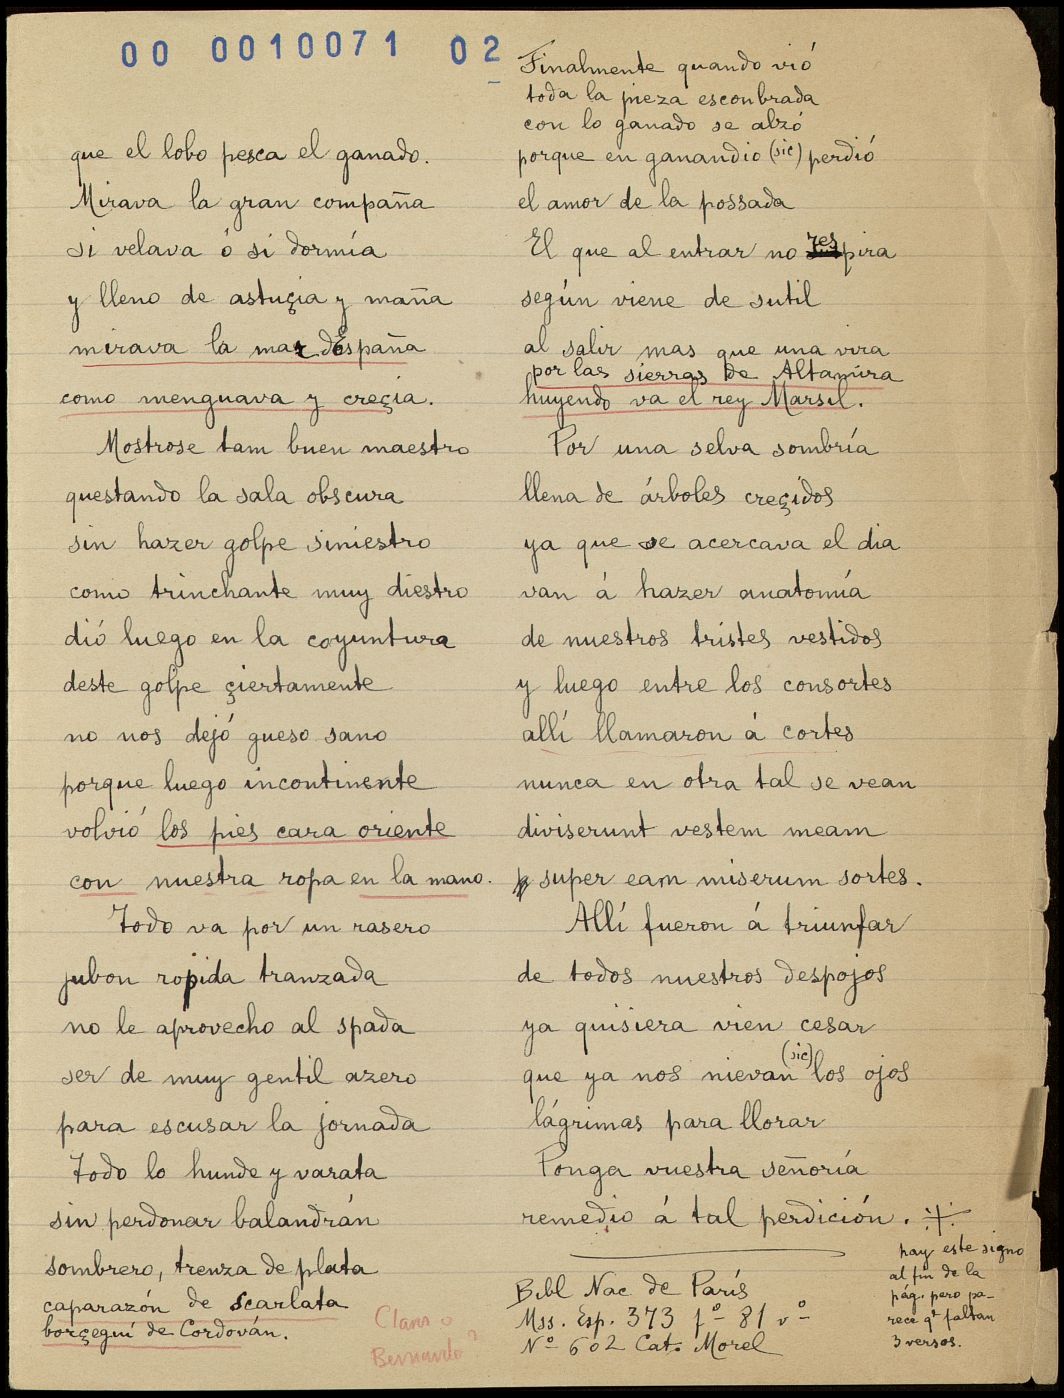 00 0010071 02
que el lobo pesca el ganado.
Mirava la gran compaña
si velava ó si dormía
y lleno de astuçia y maña
mirava la mar dEspaña
como menguava y creçia.
Mostrose tam buen maestro
questando la sala obscura
sin hazer golpe siniestro
como trinchante muy diestro
dió luego en la coyuntura
deste golpe çiertamente
no nos dejó gueso sano
porque luego incontinente
volvió los pies cara oriente
con nuestra ropa en la mano.
Todo va por un rasero
jubon ropida tranzada
no le aprovecho al spada
ser de muy gentil azero
para escusar la jornada
Todo lo hunde y varata
sin perdonar balandrán
sombrero, trenza de plata
caparazón de scarlata
borçeguí de Cordován.
Claros o
Bernardo?
Finalmente quando vió
toda la pieza esconbrada
con lo ganado se alzó
porque en ganandio (sic) perdió
el amor de la possada
El que al entrar no respira
según viene de sutil
al salir mas que una vira
por las sierras de Altamira
huyendo va el rey Marsil.
Por una selva sombría
llena de árboles creçidos
ya que se acercava el dia
van á hazer anatomía
de nuestros tristes vestidos
y luego entre los consortes
allí llamaron á cortes
nunca en otra tal se vean
diviserunt vestem meam
super eam miserum sortes.
Allí fueron á triunfar
de todos nuestros despojos
ya quisiera vien cesar
que ya nos nievan (sic) los ojos
lágrimas para llorar
Ponga vuestra señoría
remedio á tal perdición.
hay este signo
al fin de la
pág. pero pa-
rece qe faltan
3 versos.
Bibl Nac de París
Mss. Esp. 373 fº 81 vº
Nº 602 Cat. Morel